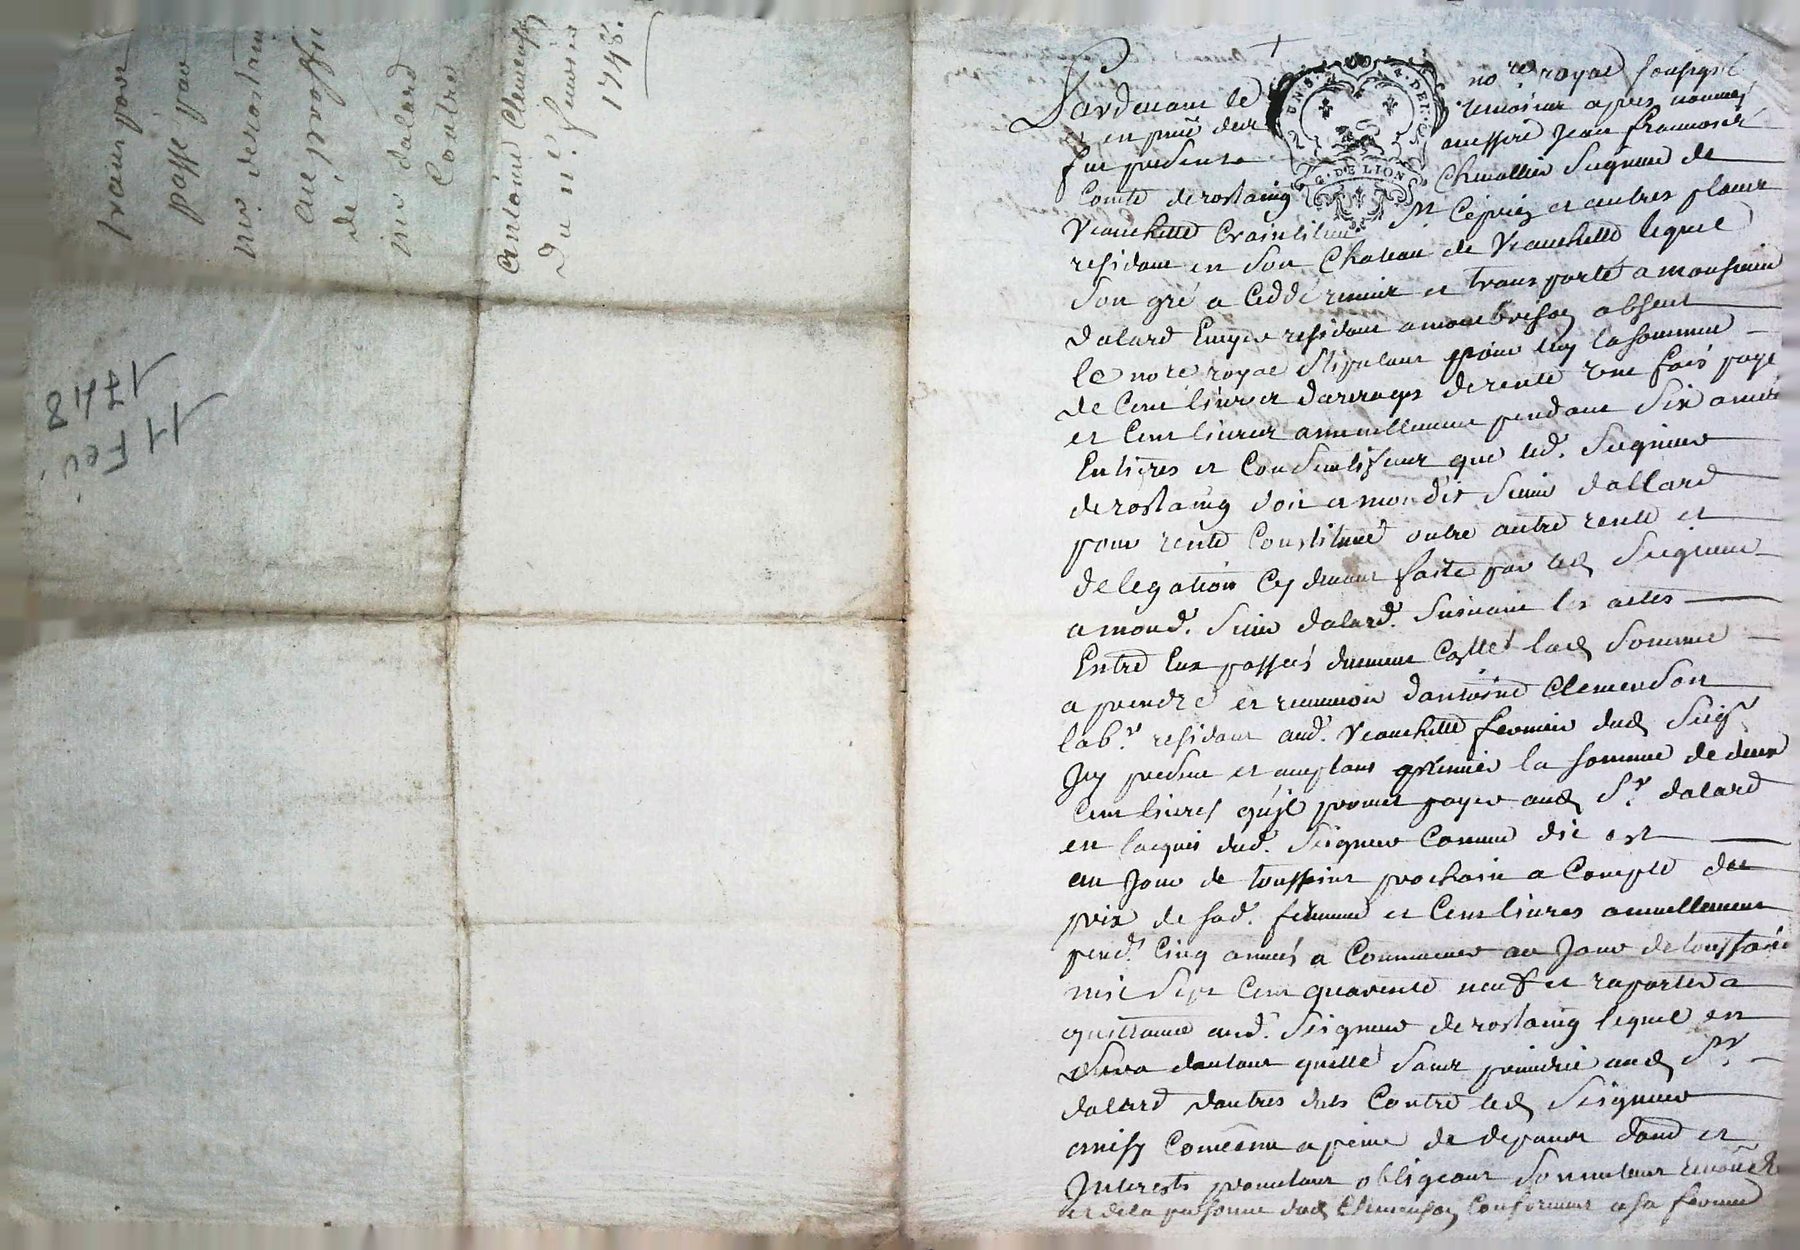 transport
passé par
mr derostaing
au proffit
de
mr dalard
Contre
Antoine Clemenson
du 11e. fevrier
1748.
11 Fév.
1748
G. DE LION
Pardevant le nore royal soussigné
et en pnce des temoins apres nommés
fut presente messire Jean francois
Comte derostaing Chevallier Seigneur de
Veauchette Craintilieu St Ciprien et autres places
residant en son Chateau de Veauchette lequel
de son gré a Ceddé remis et transporté a monsieur
dalard Ecuyer residant a montbrison absent
le nore royal stipulant pour luy la somme
de Cent livres d'arrerages de rente une fois payé
et Cent livres annuellement pendant Six années
Entieres et Consecutives que led. Seigneur
derostaing doit a mondit Sieur dallard
pour rente Constituée outre autre rente et
delegation Cy devant faite par led Seigneur
a mond. Sieur dalard. Suivant les actes
Entre Eux passés lad Somme
a prendre et recevoir dantoine Clemenson
lab.r residant aud. Veauchette fermier dud Seigr
Icy present et acceptant la somme de deux
Cent livres qu'il promet payer aud Sr. dalard
en lacquit dud. Seigneur Comme dit est
au Jour de toussaint prochain a Compte du
prix de sad. ferme et Cent livres annuellement
pend. Cinq années a Commencer au Jour de toussaint
mil Sept Cent quarente neuf et raportera
quittance aud. Seigneur derostaing lequel en
Sera dautant quitte Sans prejudice aud Sr.
dalard dautres dus Contre led Seigneur
ainsy Convenu a peine de depens dom et
Interests promettant obligeant Soumettant renonct
et dela personne dud Clemenson Conformement a sa ferme